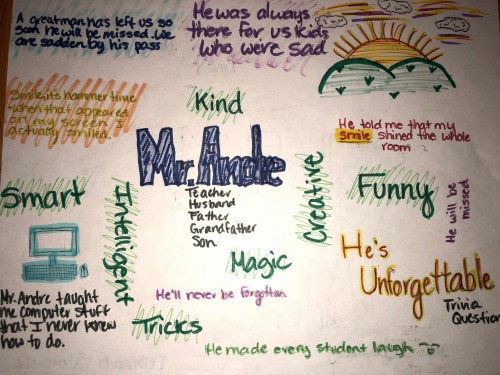 A great man has left us so
soon he will be missed. We
are sadden by his pass
He was always
there for us kids
who were sad
Smile, its hammer time
when that appeared
on my screen I
actually smiled.
Kind
He told me that my
smile shined the whole
room
Mr. Andre
Teacher
Husband
Father
Grandfather
Son
Smart
Intelligent
Creative
Funny
He will be
missed
Magic
He's
Unforgettable
Mr. Andre taught
me computer stuff
that I never knew
how to do.
He'll never be forgotten
Trivia
Question
Tricks
He made every student laugh